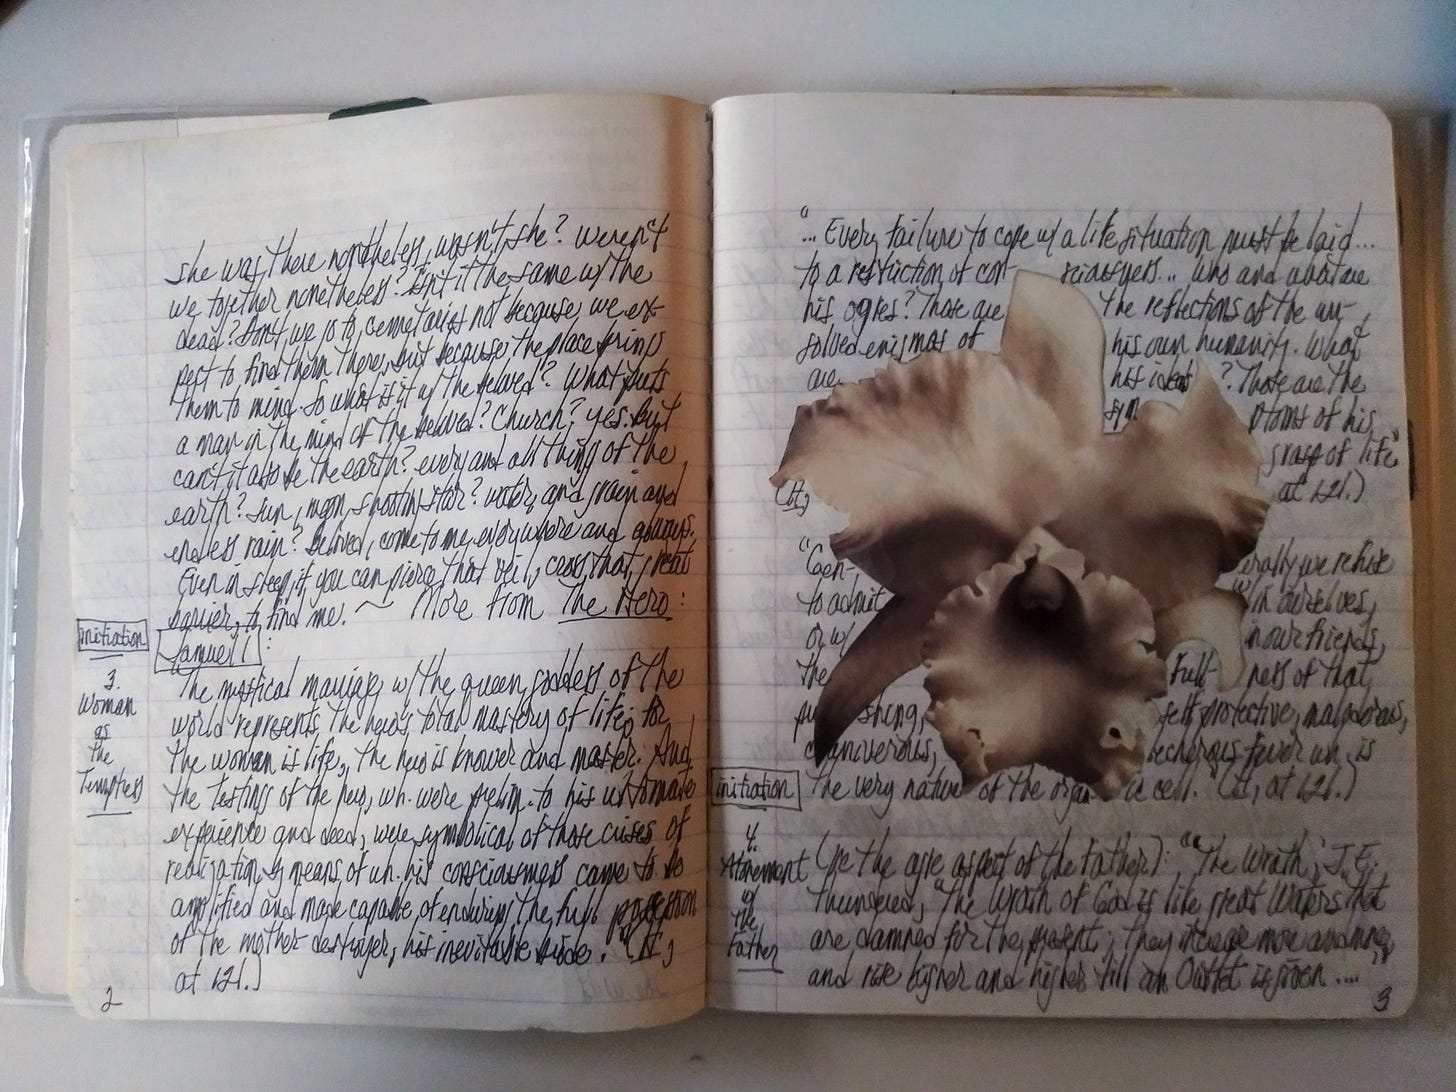 she was there nonetheless, wasn't she? weren't
we together nonetheless? Isn't it the same w/ the
dead? Don't we go to cemetaries not because we ex-
pect to find them there, but because the place brings
them to mind. So what is it w/ the beloved? What puts
a man in the mind of the beloved? Church? yes. But
can't it also be the earth? every and all thing of the
earth? Sun, moon, shooting star? water, and grain and
endless rain? Beloved, come to me everywhere and always.
Even in sleep, if you can pierce that veil, cross that great
barrier, to find me. ~ More from The Hero:
initiation
3.
Woman
as
the
Temptress
Samuel 1:
The mystical marriage w/ the queen goddess of the
world represents the hero's total mastery of life; for
the woman is life, the hero is knower and master. And
the testing of the hero, wh. were prelim. to his ultimate
experience and deed, were symbolical of those crises of
realization by means of wh. his consciousness came to be
amplified and made capable of enduring the full possession
of the mother-destroyer, his inevitable bride. " (It,
at 121.)
2
"... Every failure to cope w/ a life situation must be laid...
to a restriction of con sciousness... Wars and
his ogres? Those are the reflections of the un-
solved enigmas of his own humanity. What
are his ideals? Those are the
sym ptoms of his
grasp of life"
at 121.)
"Gen- erally we refuse
to admit w/in ourselves,
or w/ in our friends,
the Full- ness of that
pu shing, self protective, malodorous,
carniverous, lecherous fever wh. is
the very nature of the organ ic cell. " (It, at 121.)
initiation
4.
Atonement
w/
the
Father
(Re the ogre aspect of the Father): "'The Wrath,' J.E.
thundered, "the Wrath of God is like great Waters that
are dammed for the present; they increase more and more,
and rise higher and higher till an Outlet is given ....
3